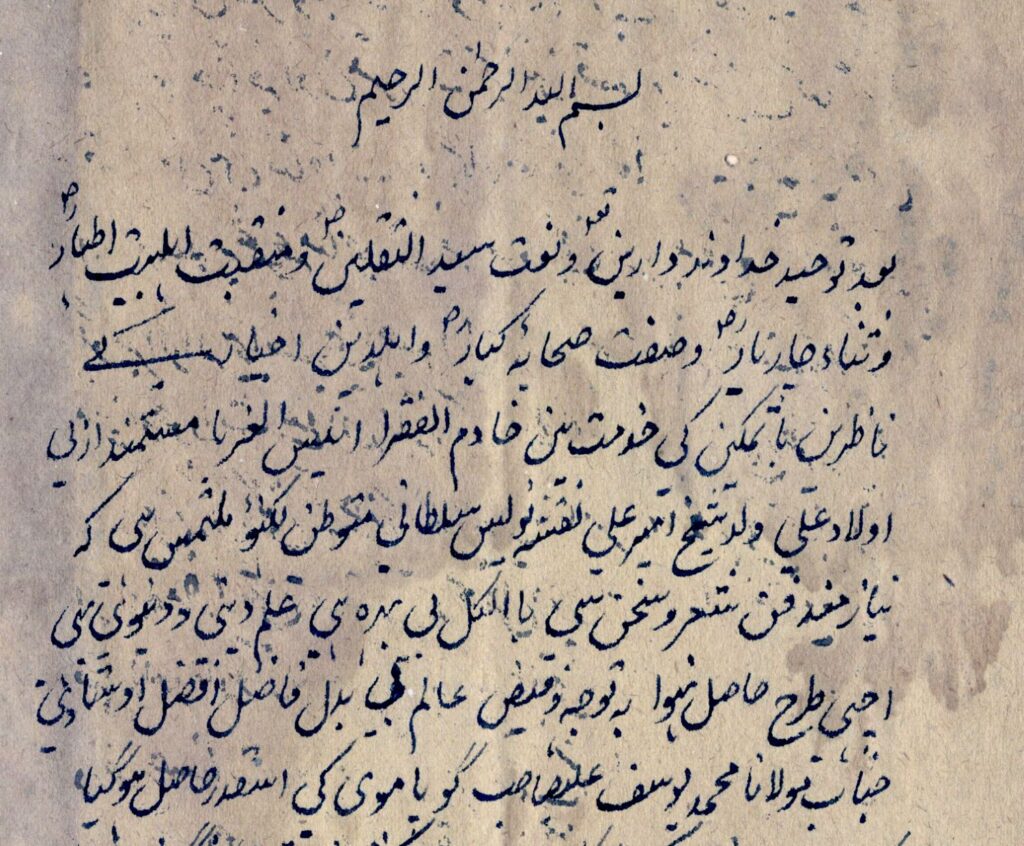 بسم اللہ الرحمن الرحیم
بعد توحید خداوند دارین و نعت سید الثقلین و منقبت اہلبیت اطہار
و ثناء چار یار و صفت صحابۂ کبار و اہلدین اخیار کے
ناظرین با تمکین کی خدمت مین خادم الفقرا انیس الغربا مستمند ازلی
اولاد علی ولد شیخ امیر علی نقشہ نویس سلطانی متوطن لکنؤ ملتمس ہی کہ
نیازمند فن شعر و سخن سی باالکل بی بہرہ ہی علم دینی و دنیوی بہی
اچہی طرح حاصل نہوا بہ توجہ و فیض عالم بی بدل فاضل افضل اوستاذی
جناب مولانا محمد یوسف علیصاحب گوپاموی کی اسقدر حاصل ہوگیا